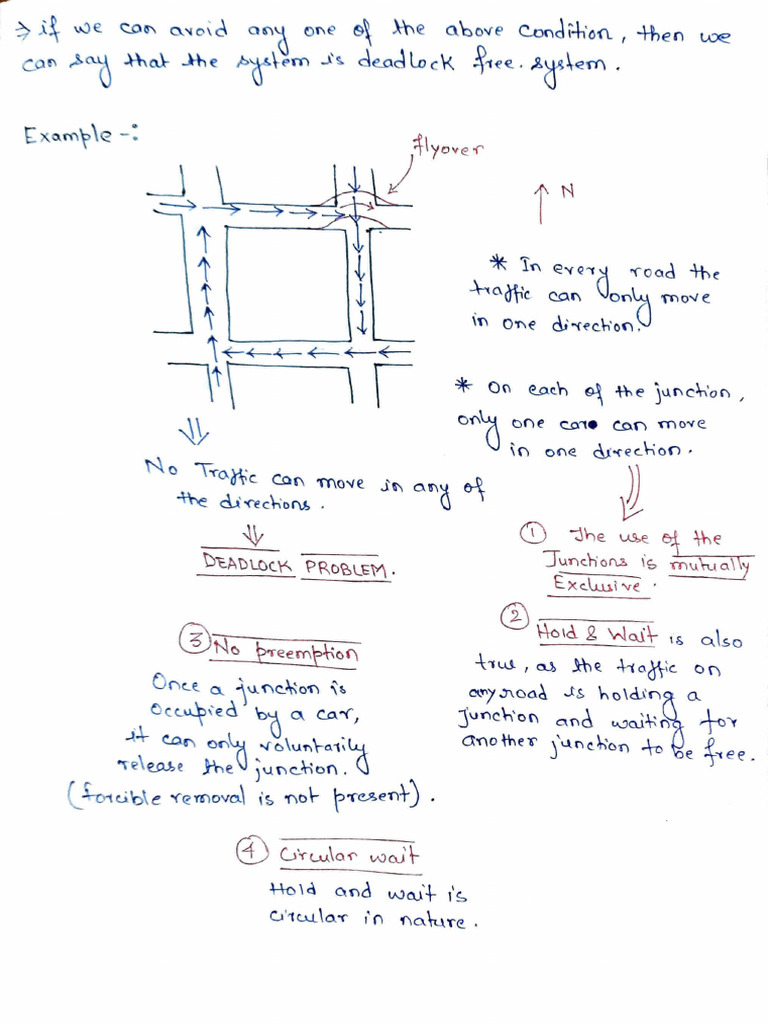 ⇒ if we can avoid any one of the above condition, then we
can say that the system is deadlock free. system.
Example -:
flyover
N
* In every road the
traffic can only move
in one direction.
* On each of the junction,
only one car can move
in one direction.
⇓
No Traffic can move in any of
the directions.
⇓
DEADLOCK PROBLEM.
① The use of the
Junctions is mutually
Exclusive.
② Hold & Wait is also
true, as the traffic on
any road is holding a
junction and waiting for
another junction to be free.
③ No preemption
Once a junction is
occupied by a car,
it can only voluntarily
release the junction.
(forcible removal is not present).
④ Circular wait
Hold and wait is
circular in nature.